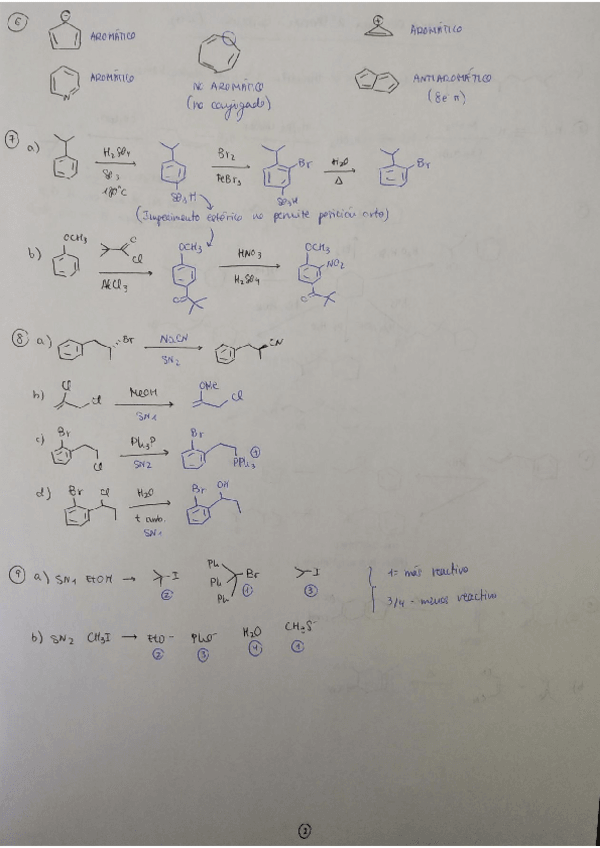 6 ⊖ AROMÁTICO ⊖ ⊕ AROMÁTICO
N AROMÁTICO NO AROMÁTICO ANTIAROMÁTICO
(no conjugado) (8e⁻ π)
7 a) H₂SO₄ SO₃ 180°C SO₃H Br₂ FeBr₃ Br SO₃H H₂O Δ Br
(Impedimento estérico no permite posición orto)
b) OCH₃ O Cl AlCl₃ OCH₃ O HNO₃ H₂SO₄ OCH₃ NO₂ O
8 a) Br NaCN SN2 CN
b) Cl Cl MeOH SN1 OMe Cl
c) Br Cl Ph₃P SN2 Br PPh₃ ⊕
d) Br Cl H₂O SN1 Br OH
9 a) SN1 EtOH → I Ph Ph Ph Br I 1 = más reactivo
2 1 3 3/4 - menos reactivo
b) SN2 CH₃I → EtO⁻ PhO⁻ H₂O CH₃S⁻
2 3 4 1
2